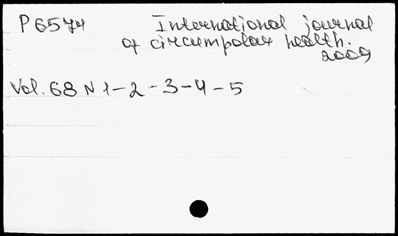 P6574 International journal
of circumpolar health.
2009
Vol. 68 N 1-2-3-4-5